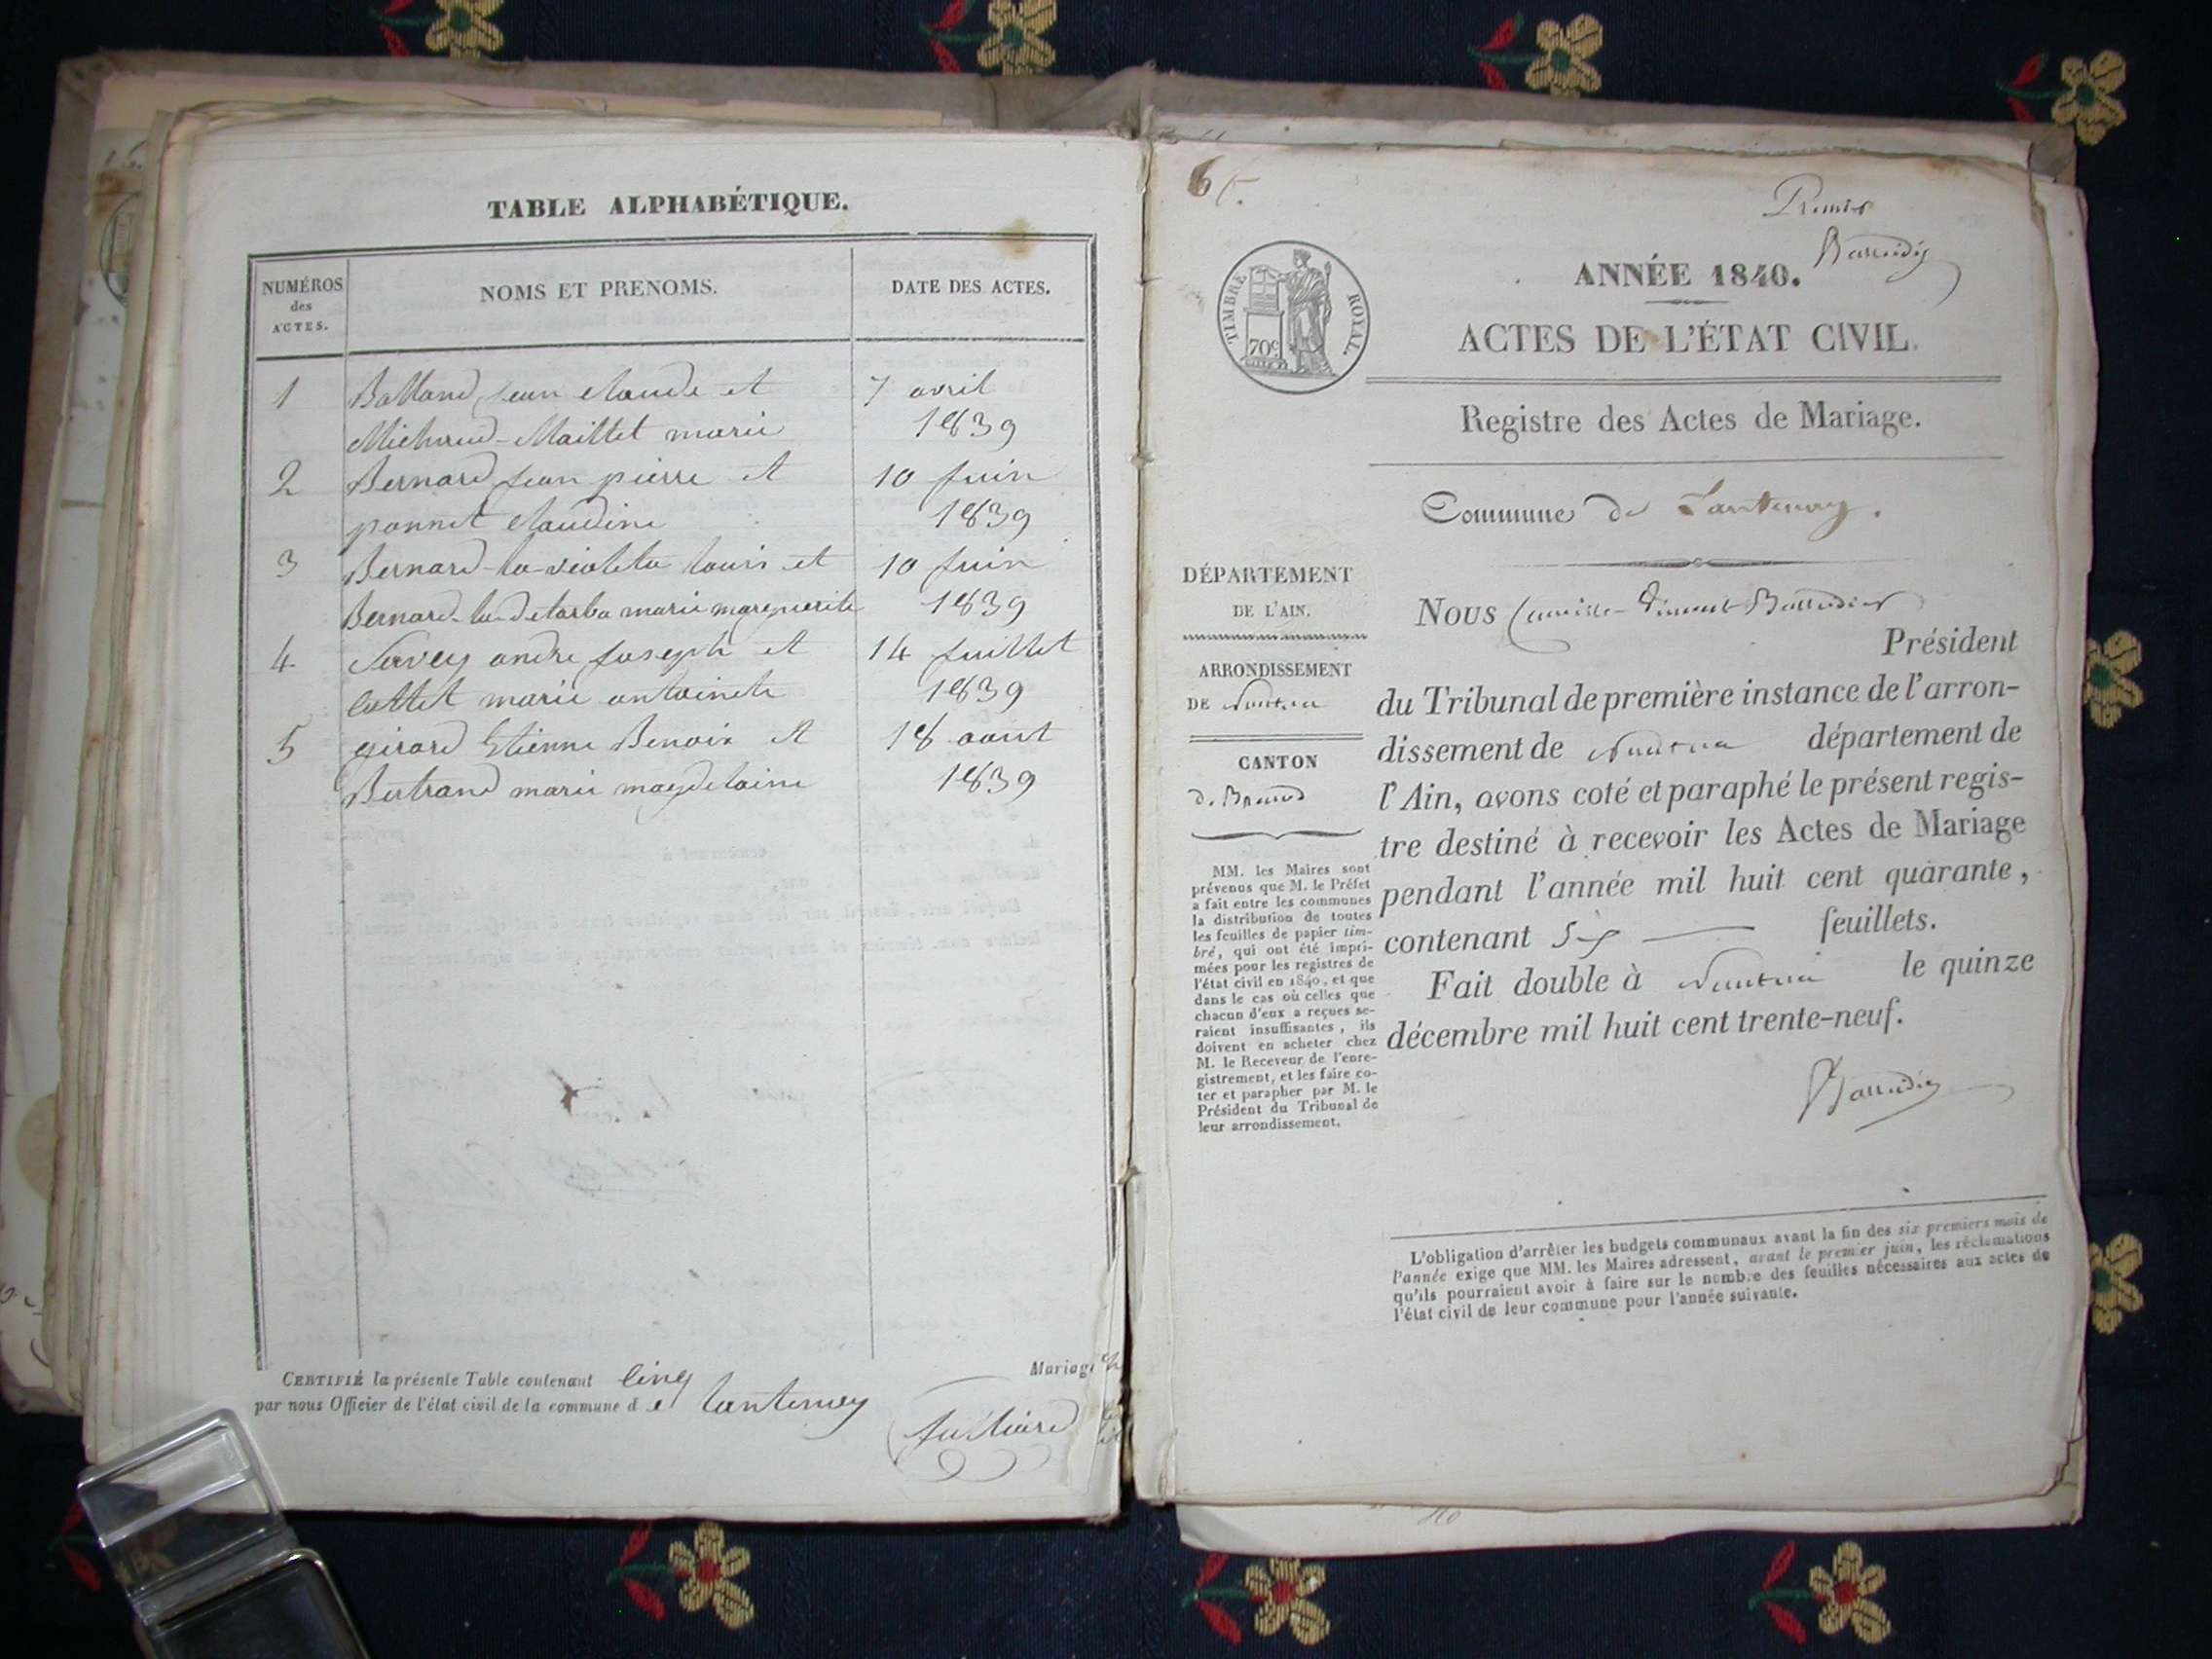 TABLE ALPHABÉTIQUE.
NUMÉROS
des
ACTES.
NOMS ET PRENOMS.
DATE DES ACTES.
1 Balland jean claude et 7 avril
Michaud-Maillet marie 1839
2 Bernard jean pierre et 10 juin
ponnet claudine 1839
3 Bernard-la-violette louis et 10 juin
Bernard marie marguerite 1839
4 Servey andre joseph et 14 juillet
cottet marie antoinette 1839
5 girard Etienne Benoix et 18 aout
Bertrand marie magdelaine 1839
CERTIFIÉ la présente Table contenant cinq Mariage
par nous Officier de l'état civil de la commune d e lantenay
6 f.
Premier
ANNÉE 1840.
TIMBRE ROYAL.
70c
ACTES DE L'ÉTAT CIVIL.
Registre des Actes de Mariage.
Commune de Lantenay.
DÉPARTEMENT
DE L'AIN.
ARRONDISSEMENT
DE Nantua
CANTON
de Brenod
MM. les Maires sont
prévenus que M. le Préfet
a fait entre les communes
la distribution de toutes
les feuilles de papier tim-
bré, qui ont été impri-
mées pour les registres de
l'état civil en 1840, et que
dans le cas où celles que
chacun d'eux a reçues se-
raient insuffisantes, ils
doivent en acheter chez
M. le Receveur de l'enre-
gistrement, et les faire co-
ter et parapher par M. le
Président du Tribunal de
leur arrondissement.
Nous Camille-Vincent
Président
du Tribunal de première instance de l'arron-
dissement de Nantua département de
l'Ain, avons coté et paraphé le présent regis-
tre destiné à recevoir les Actes de Mariage
pendant l'année mil huit cent quarante,
contenant Six feuillets.
Fait double à Nantua le quinze
décembre mil huit cent trente-neuf.
L'obligation d'arrêter les budgets communaux avant la fin des six premiers mois de
l'année exige que MM. les Maires adressent, avant le premier juin, les réclamations
qu'ils pourraient avoir à faire sur le nombre des feuilles nécessaires aux actes de
l'état civil de leur commune pour l'année suivante.